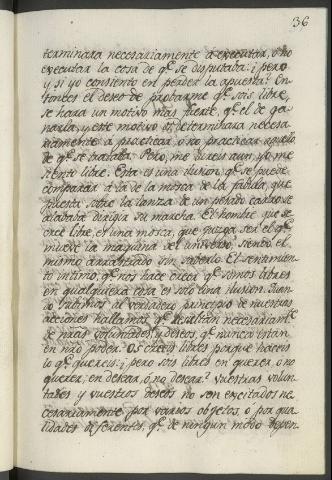 36
terminara necesariamente á executar, ó no
executar la cosa de q.e se disputaba: ¿pero
y si yo consiento en perder la apuesta? En-
tonces el deseo de probarme q.e sois libre,
se hara un motivo mas fuerte, q.e el de ga-
narla, y este motivo os determinara necesa-
riamente á practicar, ó no practicar aquello
de q.e se trataba. Pero, me direis aun, yo me
siento libre. Esta es una ilusion, q.e se puede
comparar á la de la mosca de la fabula, que
puesta sobre la lanza de un pesado carro se
alababa dirigia su marcha. El hombre que se
cree libre, es una mosca, que juzga ser el q.e
mueve la maquina del universo, siendo el
mismo arrastrado sin saberlo. El sentimien-
to intimo, q.e nos hace creer q.e somos libres
en qualquiera cosa es solo una ilusion. Quan-
do subimos al verdadero principio de nuestras
acciones hallamos, q.e resultan necesariam.te
de nras voluntades y deseos, q.e nunca estan
en nro poder. Os creeis libres porque haceis
lo q.e quereis; ¿pero sois libres en querer, ó no
querer, en desear, ó no desear? Vuestras volun-
tades y vuestros deseos no son excitados ne-
cesariamente por varios objetos, ó por qua-
lidades diferentes, q.e de ningun modo depen-